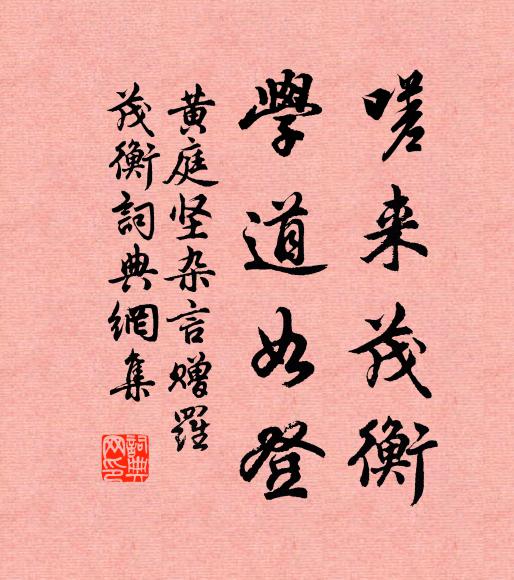 嗟来茂衡
學道如登
黄庭坚杂言赠羅
茂衡詞典網集
詞典网印